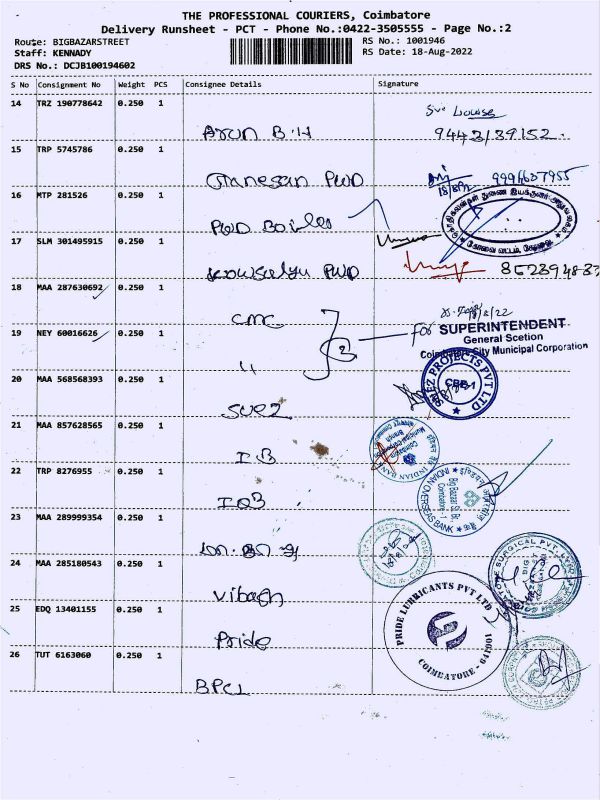 THE PROFESSIONAL COURIERS, Coimbatore
Delivery Runsheet - PCT - Phone No.:0422-3505555 - Page No.:2
Route: BIGBAZARSTREET
RS No.: 1001946
Staff: KENNADY
RS Date: 18-Aug-2022
DRS No.: DCJB100194602
S No Consignment No Weight PCS Consignee Details Signature
14 TRZ 190778642 0.250 1
Arun B.H 9443139152.
15 TRP 5745786 0.250 1
Ganesan PWD
16 MTP 281526 0.250 1
PWD
17 SLM 301495915 0.250 1
PWD
18 MAA 287630692 0.250 1
CMC
19 NEY 60016626 0.250 1
"
for SUPERINTENDENT
General Scetion
Coimbatore City Municipal Corporation
20 MAA 568568393 0.250 1
SUEZ
SUEZ PROJECTS PVT LTD
CBE-1
21 MAA 857628565 0.250 1
IB
INDIAN BANK
22 TRP 8276955 0.250 1
IOB
INDIAN OVERSEAS BANK
Big Bazaar St. Br.
Coimbatore - 1
23 MAA 289999354 0.250 1
24 MAA 285180543 0.250 1
25 EDQ 13401155 0.250 1
Pride
PRIDE LUBRICANTS PVT LTD
COIMBATORE - 641001
26 TUT 6163060 0.250 1
BPCL